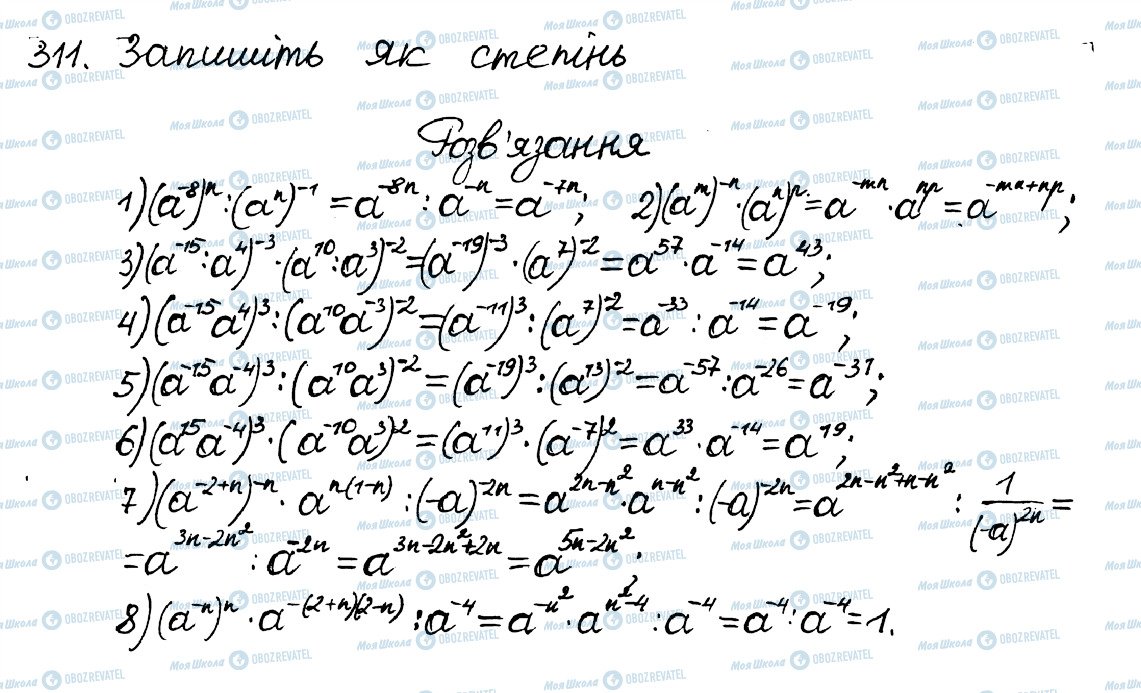 311. Запишіть як степінь
Розв'язання
1) (a⁻⁸)ⁿ : (aⁿ)⁻¹ = a⁻⁸ⁿ : a⁻ⁿ = a⁻⁷ⁿ; 2) (aᵐ)⁻ⁿ · (aⁿ)ᵖ = a⁻ᵐⁿ · aⁿᵖ = a⁻ᵐⁿ⁺ⁿᵖ;
3) (a⁻¹⁵ : a⁴)⁻³ · (a¹⁰ : a³)⁻² = (a⁻¹⁹)⁻³ · (a⁷)⁻² = a⁵⁷ · a⁻¹⁴ = a⁴³;
4) (a⁻¹⁵a⁴)³ : (a¹⁰a⁻³)⁻² = (a⁻¹¹)³ : (a⁷)⁻² = a⁻³³ : a⁻¹⁴ = a⁻¹⁹;
5) (a⁻¹⁵a⁻⁴)³ : (a¹⁰a³)⁻² = (a⁻¹⁹)³ : (a¹³)⁻² = a⁻⁵⁷ : a⁻²⁶ = a⁻³¹;
6) (a¹⁵a⁻⁴)³ · (a⁻¹⁰a³)² = (a¹¹)³ · (a⁻⁷)² = a³³ · a⁻¹⁴ = a¹⁹;
7) (a^(-2+n))^(-n) · a^(n·(1-n)) : (-a)^(-2n) = a^(2n-n²) · a^(n-n²) : (-a)^(-2n) = a^(2n-n²+n-n²) : 1/(-a)^(2n) =
= a^(3n-2n²) : a^(-2n) = a^(3n-2n²+2n) = a^(5n-2n²).
8) (a⁻ⁿ)ⁿ · a^(-(-2+n)(-2-n)) : a⁻⁴ = a^(-n²) · a^(n²-4) : a⁻⁴ = a⁻⁴ : a⁻⁴ = 1.